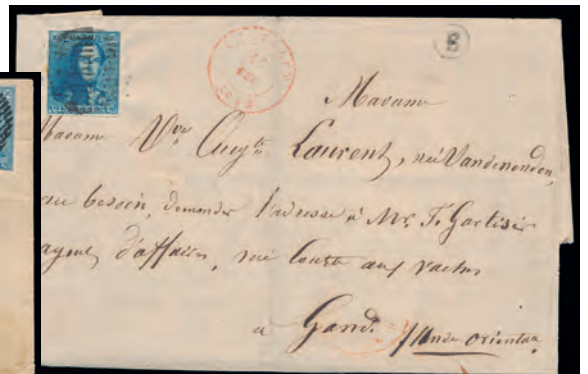 B
Madame
Madame Vve Augte Laurent, née Vandenenden,
au besoin, demander l'adresse à Mr. F.
agent d'affaires, rue Courte aux vaches
à Gand. flande orientale